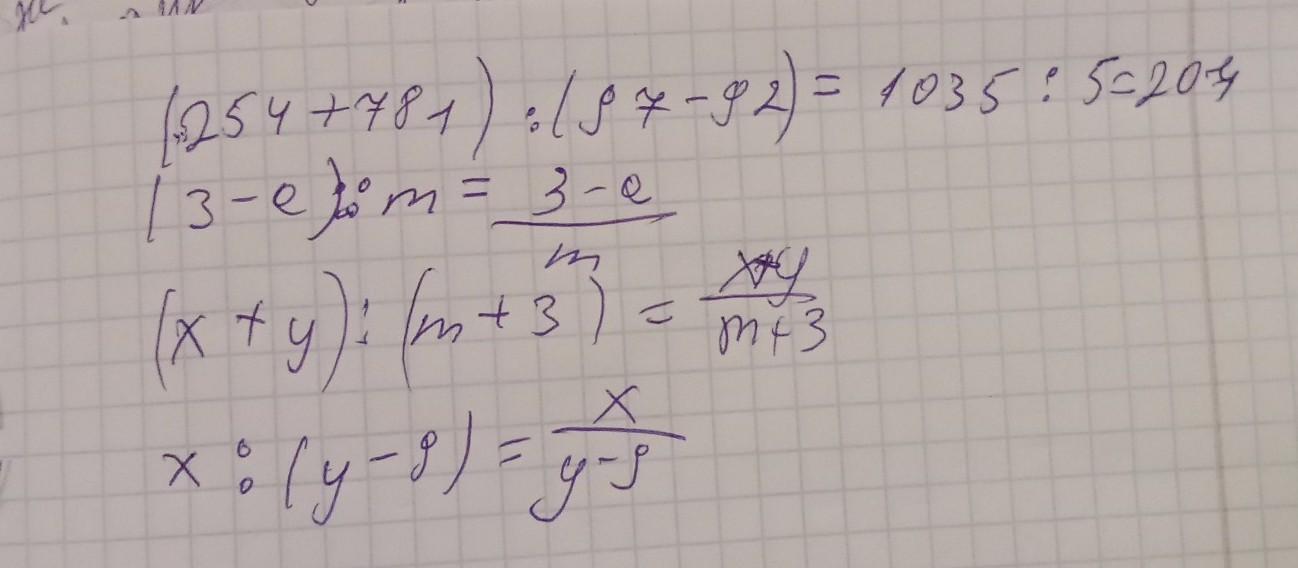 (254+781):(97-92)=1035:5=207
(3-e):m=\frac{3-e}{m}
(x+y):(m+3)=\frac{x+y}{m+3}
x:(y-9)=\frac{x}{y-9}